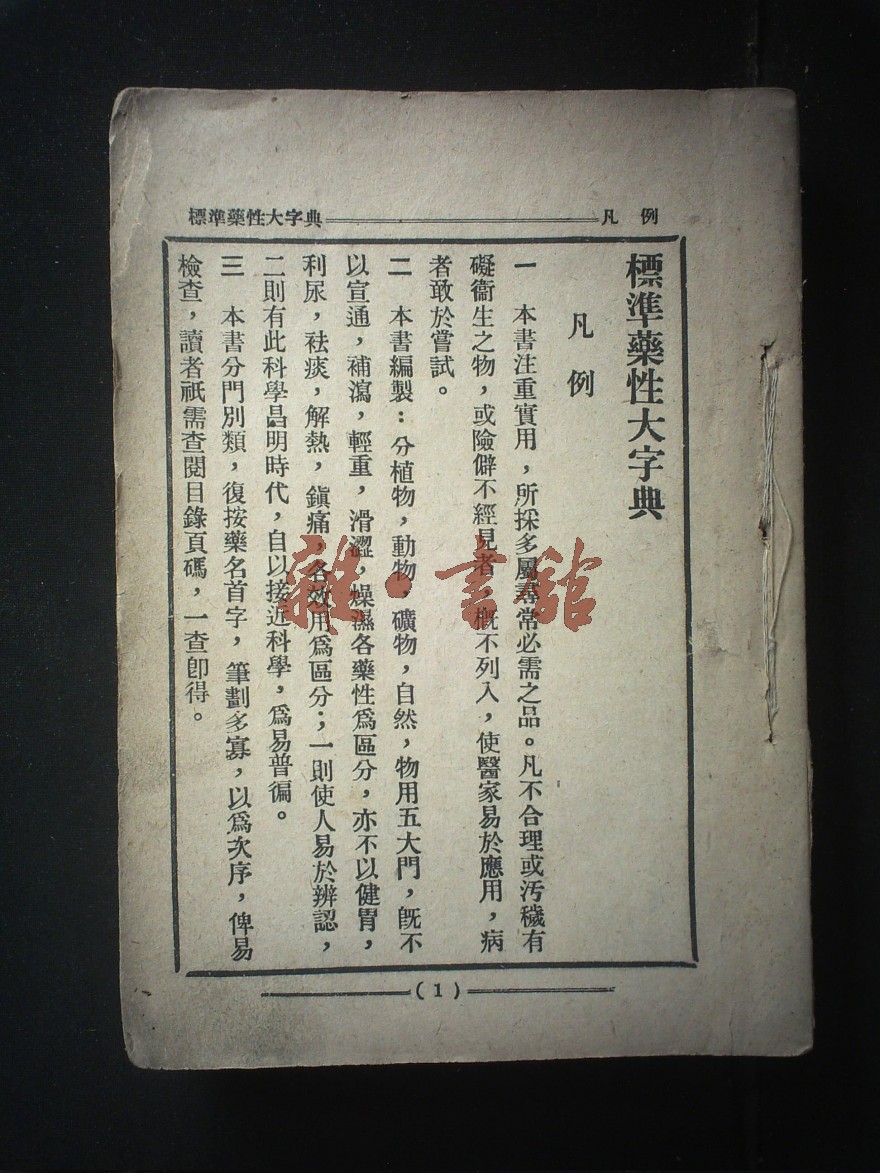 標準藥性大字典
凡例
標準藥性大字典
凡例
一 本書注重實用，所採多屬尋常必需之品。凡不合理或汚穢有
礙衞生之物，或險僻不經見者，概不列入，使醫家易於應用，病
者敢於嘗試。
二 本書編製：分植物，動物，礦物，自然，物用五大門，旣不
以宣通，補瀉，輕重，滑澀，燥濕各藥性爲區分，亦不以健胃，
利尿，祛痰，解熱，鎭痛，各效用爲區分；一則使人易於辨認，
二則有此科學昌明時代，自以接近科學，爲易普徧。
三 本書分門別類，復按藥名首字，筆劃多寡，以爲次序，俾易
檢查，讀者祇需查閱目錄頁碼，一查卽得。
(1)
雜·書舘